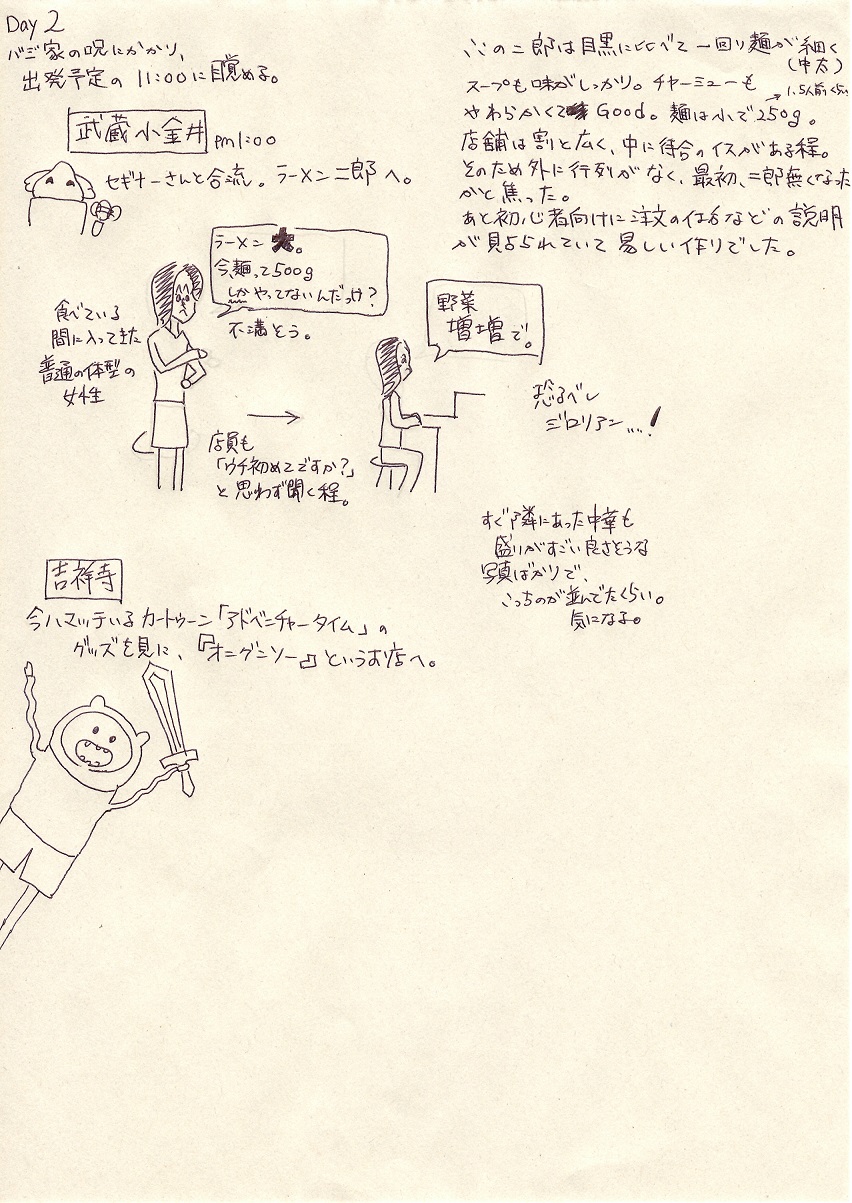 Day 2
バジ家の呪にかかり、
出発予定の 11:00に目覚める。
武蔵小金井 pm1:00
セギナーさんと合流。ラーメン二郎へ。
ラーメン 大。
今、麺って500g
しかやってないんだっけ？
不満そう。
食べている
間に入ってきた
普通の体型の
女性
店員も
「ウチ初めてですか？」
と思わず聞く程。
野菜
増増で。
恐るべし
ジロリアン…！
ここの二郎は目黒に比べて一回り麺が細く
(中太)
スープも味がしっかり。チャーシューも
1.5人前くらい
やわらかくて Good。麺は小で250g。
店舗は割と広く、中に待合のイスがある程。
そのため外に行列がなく、最初、二郎無くなった
かと焦った。
あと初心者向けに注文の仕方などの説明
が見よられていて易しい作りでした。
すぐ隣にあった中華も
盛りがすごい良さそうな
写真ばかりで、
こっちのが並んでたくらい。
気になる。
吉祥寺
今ハマッテいるカートゥーン「アドベンチャータイム」の
グッズを見に、『オニグンソー』というお店へ。